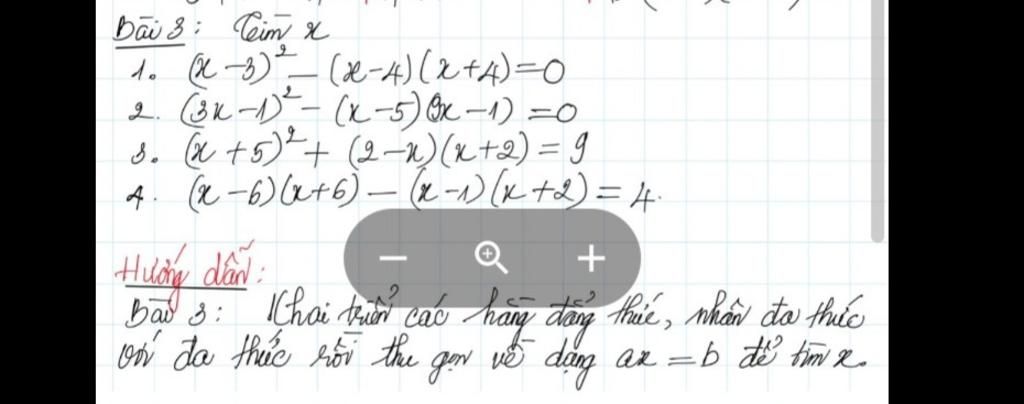 Bài 3 : Tìm x
1. (x-3)² - (x-4)(x+4)=0
2. (3x-1)² - (x-5)(9x-1) =0
3. (x+5)² + (2-x)(x+2) = 9
4. (x-6)(x+6) - (x-1)(x+2) = 4.
Hướng dẫn:
Bài 3 : Khai triển các hằng đẳng thức, nhân đa thức
với đa thức rồi thu gọn về dạng ax = b để tìm x.